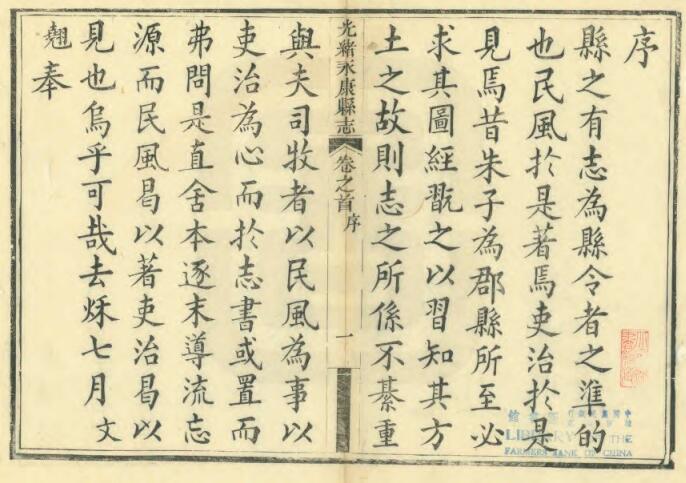 序
縣之有志為縣令者之準的
也民風於是著焉吏治於是
見焉昔朱子為郡縣所至必
求其圖經翫之以習知其方
土之故則志之所係不綦重
光緒永康縣志
卷之首
序
一
與夫司牧者以民風為事以
吏治為心而於志書或置而
弗問是直舍本逐末導流忘
源而民風曷以著吏治曷以
見也烏乎可哉去秌七月文
翹奉
LIBRARY THE
FARMERS BANK OF CHINA